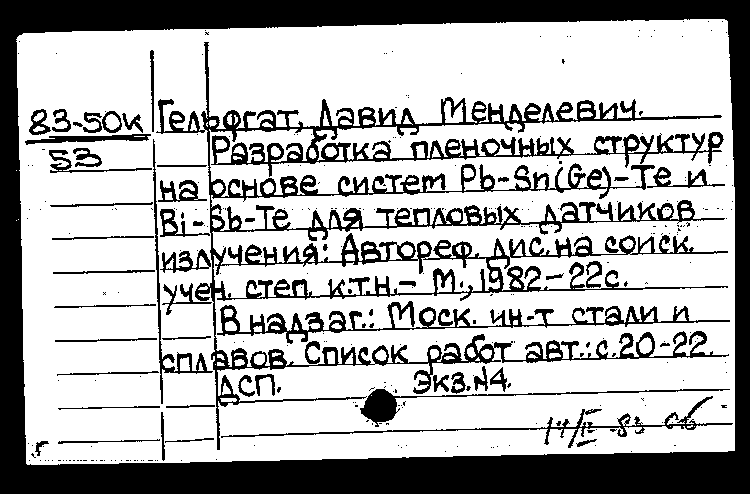 83-50к Гельфгат, Давид Менделевич.
53 Разработка пленочных структур
на основе систем Pb-Sn(Ge)-Te и
Bi-Sb-Te для тепловых датчиков
излучения: Автореф. дис. на соиск.
учен. степ. к.т.н.- М., 1982.-22с.
В надзаг.: Моск. ин-т стали и
сплавов. Список работ авт.: с.20-22.
ДСП. Экз.№4.
83